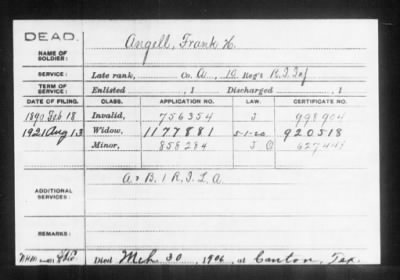 DEAD.
NAME OF SOLDIER: Angell, Frank H.
SERVICE: Late rank, Co. A, 10 Reg't R.I. Inf
TERM OF SERVICE: Enlisted , 1 Discharged , 1
DATE OF FILING. CLASS. APPLICATION NO. LAW. CERTIFICATE NO.
1890 Feb 18 Invalid, 756354 J 998904
1921 Aug 13 Widow, 1177881 5-1-20 920518
Minor, 858284 J
ADDITIONAL SERVICES: A & B, 1 R.I. L.A.
Died Mch 30, 1906, at Canton, Tex.